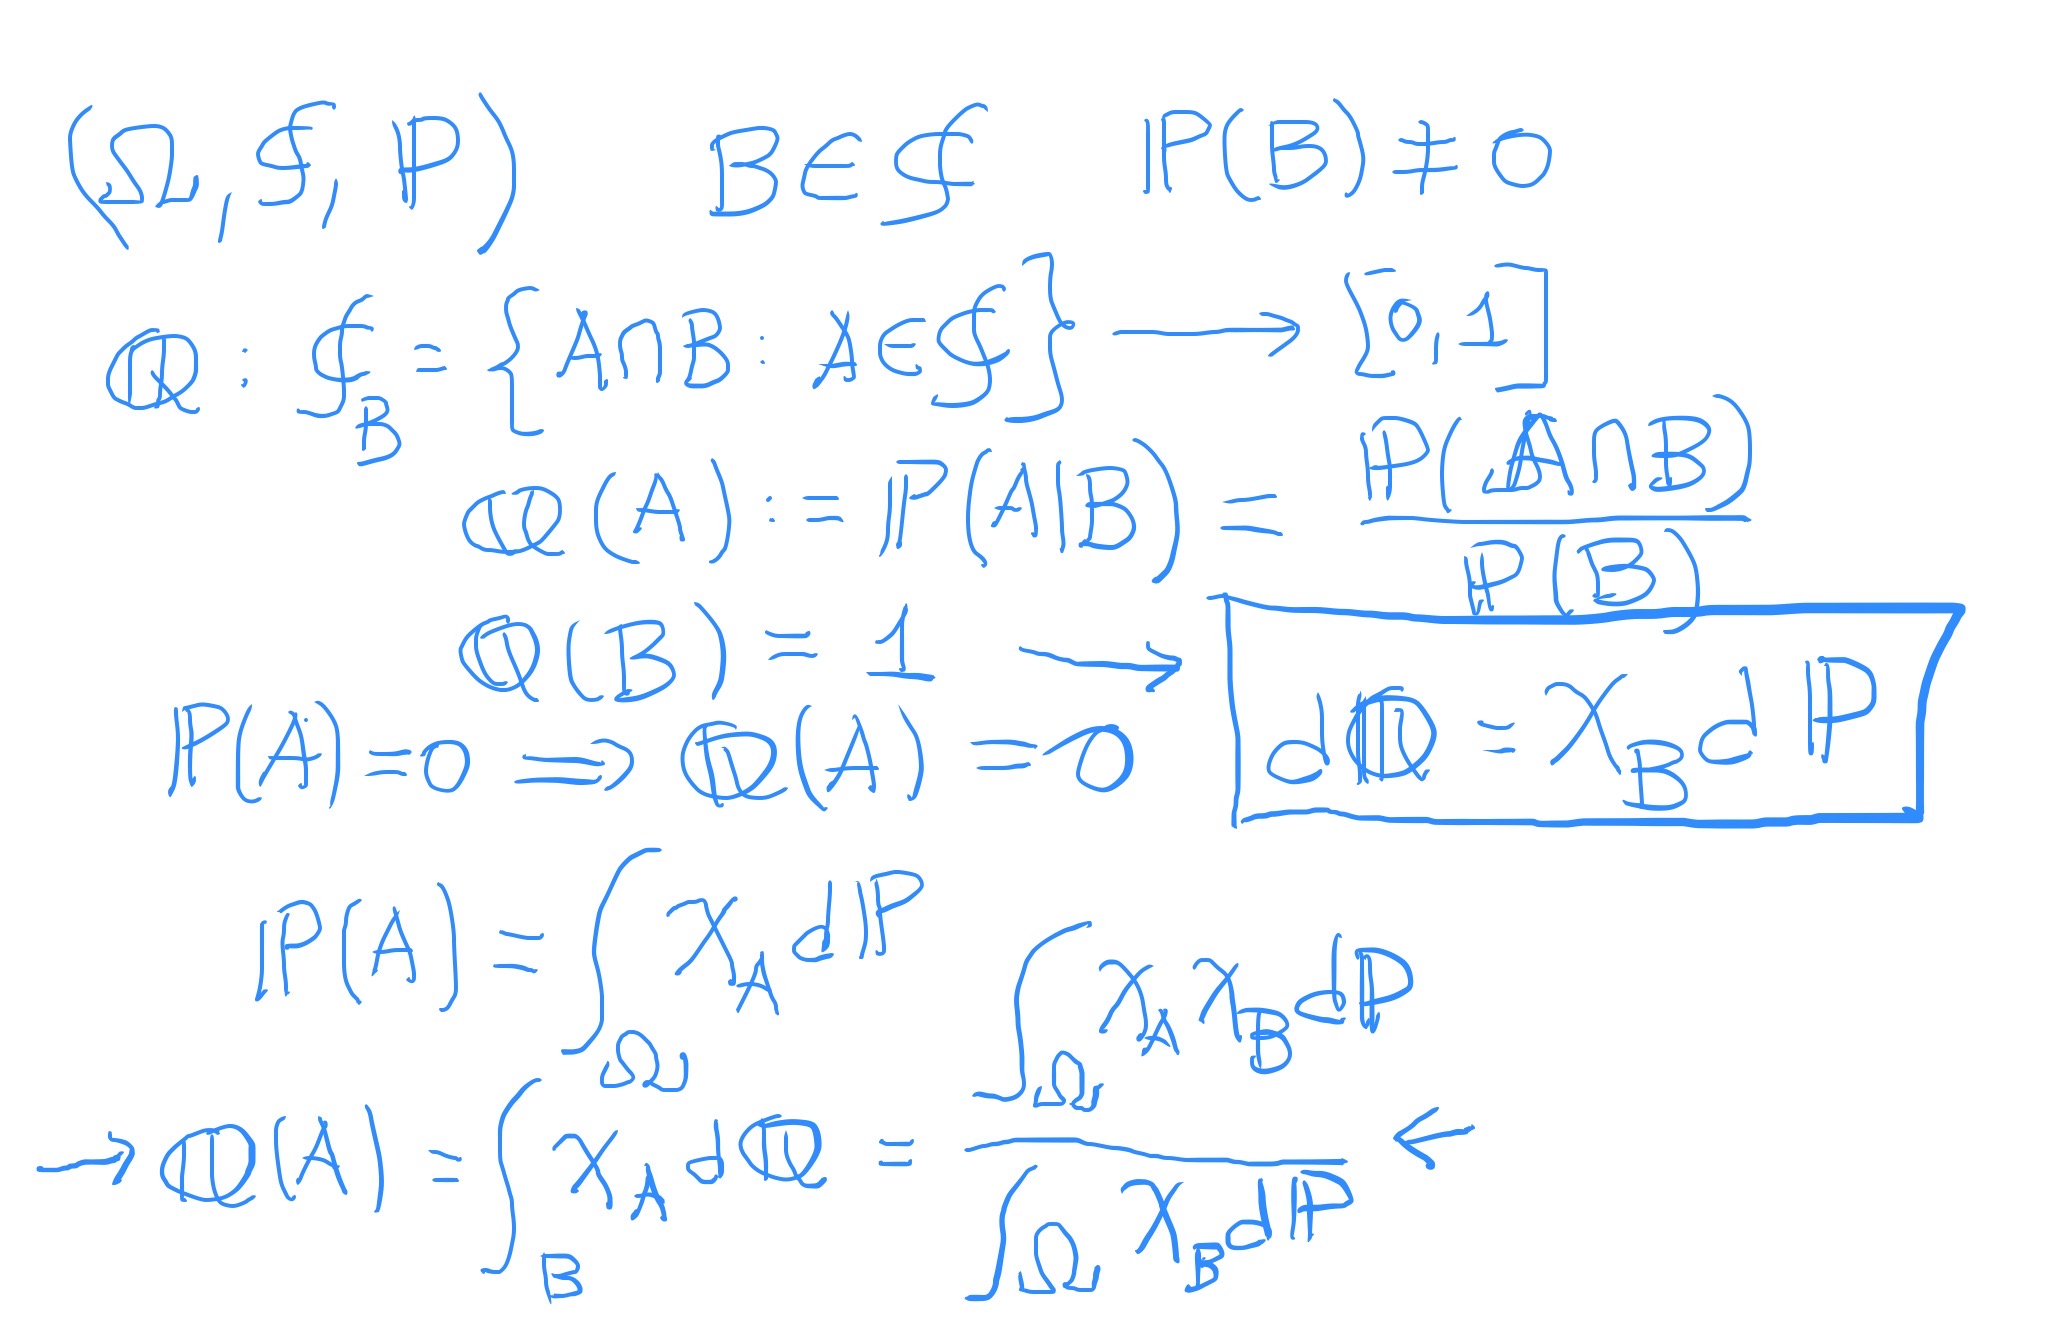 (Ω, 𝓕, ℙ) B ∈ 𝓕 ℙ(B) ≠ 0
ℚ : 𝓕_B = {A∩B : A ∈ 𝓕} ⟶ [0,1]
ℚ(A) := ℙ(A|B) = ℙ(A∩B) / ℙ(B)
ℚ(B) = 1 ⟶ dℚ = χ_B dℙ
ℙ(A) = 0 ⟹ ℚ(A) = 0
ℙ(A) = ∫_Ω χ_A dℙ
→ ℚ(A) = ∫_B χ_A dℚ = ∫_Ω χ_A χ_B dℙ / ∫_Ω χ_B dℙ ←